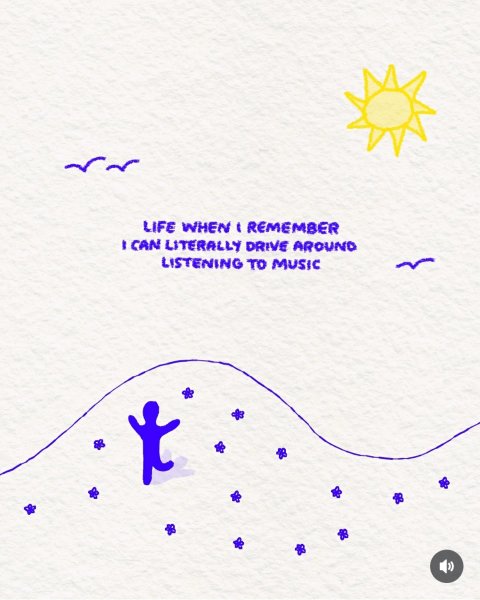 LIFE WHEN I REMEMBER
I CAN LITERALLY DRIVE AROUND
LISTENING TO MUSIC